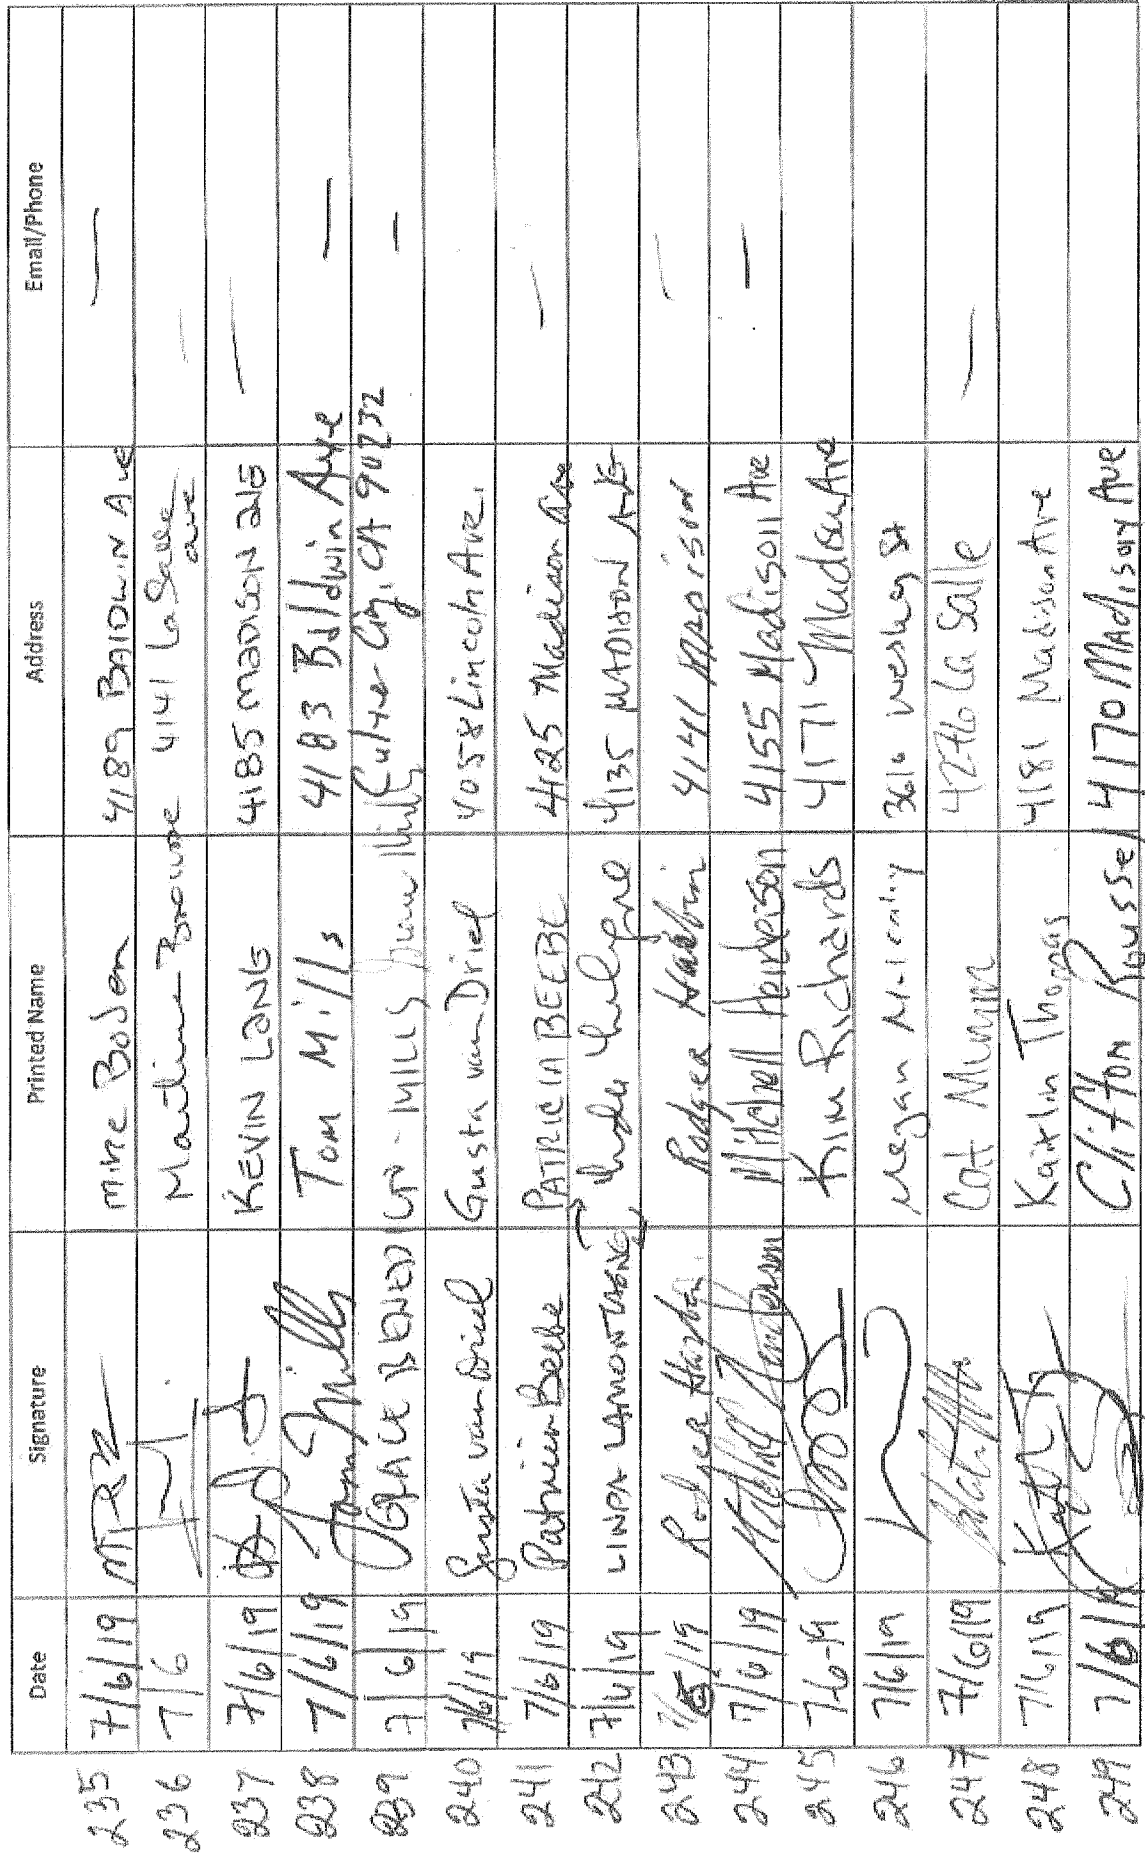 Date Signature Printed Name Address Email/Phone
235 7/6/19 Mike Boden 4189 BALDWIN Ave —
236 7/6 Martine Browne 4141 LaSalle ave —
237 7/6/19 KEVIN LANG 4185 MADISON AVE —
238 7/6/19 Tom Mills Tom Mills 4183 Baldwin Ave —
239 7/6/19 GRACE BENEDICTO - MILLS Culver City, CA 90232 —
240 7/6/19 Gusta van Driel Gusta van Driel 4058 Lincoln Ave.
241 7/6/19 Patricia Beebe PATRICIA BEEBE 4125 Madison Ave —
242 7/6/19 LINDA LAMONTAGNE 4135 MADISON AVE
243 7/6/19 Rodger Rodger 4141 MADISON —
244 7/6/19 Mitchell Henderson Mitchell Henderson 4155 Madison Ave —
245 7-6-19 Kim Richards 4171 Madison Ave
246 7/6/19 Megan 3616 Wesley St
247 7/6/19 Cat Munn La Salle —
248 7/6/19 Kaitlin Thomas 4181 Madison Ave
249 7/6/19 Clifton Rousse 4170 Madison Ave